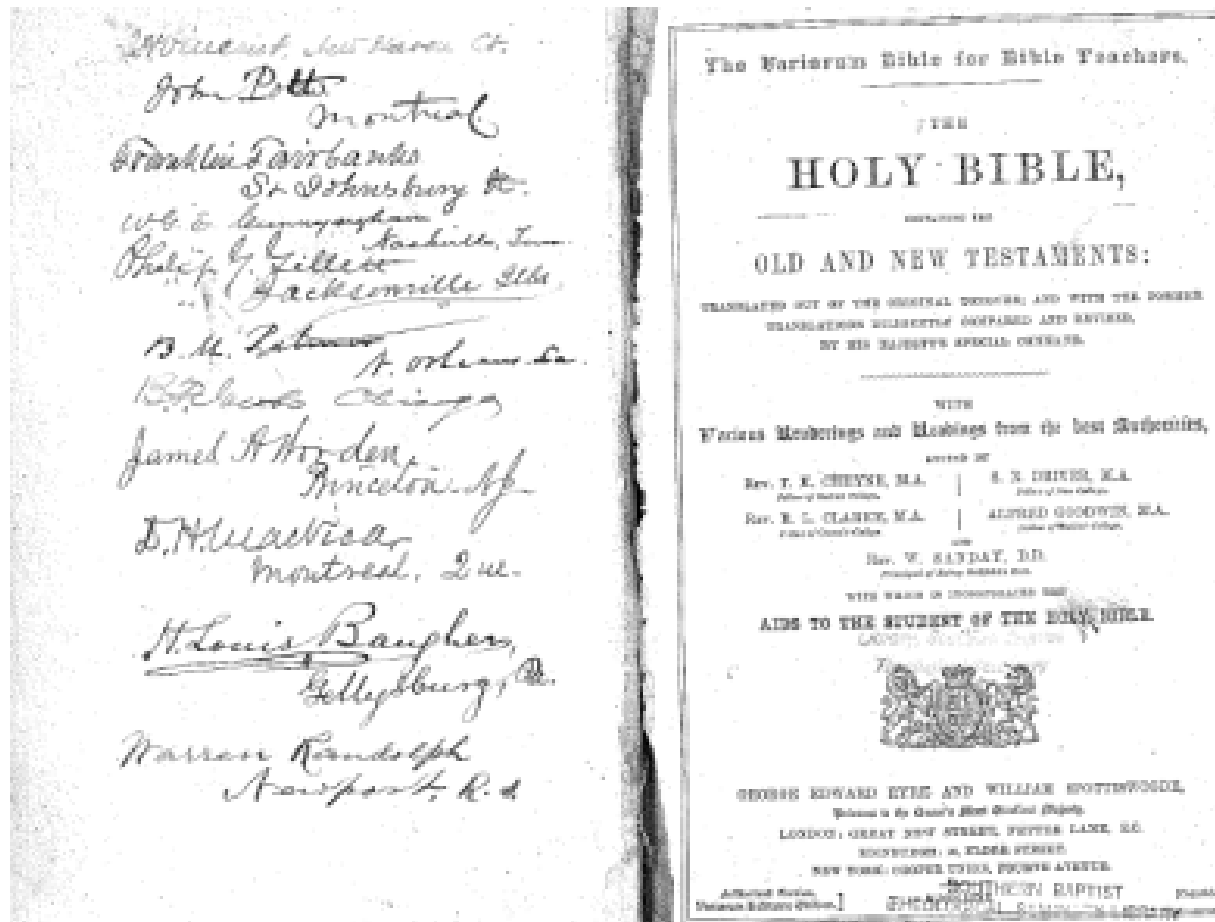 New Haven Ct.
John Potts
Montreal
Franklin Fairbanks
St Johnsbury Vt.
Nashville, Tenn
Philip G. Gillett
Jacksonville Ills.
B. M.
N. Orleans La.
B. F. Jacobs Chicago
James A Worden,
Princeton NJ
D. H. MacVicar,
Montreal, Que.
H. Louis Baugher,
Gettysburg, Pa.
Warren Randolph
Newport, R. I
The Variorum Bible for Bible Teachers.
THE
HOLY BIBLE,
CONTAINING THE
OLD AND NEW TESTAMENTS:
TRANSLATED OUT OF THE ORIGINAL TONGUES; AND WITH THE FORMER
TRANSLATIONS DILIGENTLY COMPARED AND REVISED,
BY HIS MAJESTY'S SPECIAL COMMAND.
WITH
Various Renderings and Readings from the best Authorities,
EDITED BY
Rev. T. K. CHEYNE, M.A. S. R. DRIVER, M.A.
Fellow of Balliol College. Fellow of New College.
Rev. R. L. CLARKE, M.A. ALFRED GOODWIN, M.A.
Fellow of Queen's College. Fellow of Balliol College.
AND
Rev. W. SANDAY, D.D.
WITH WHICH IS INCORPORATED THE
AIDS TO THE STUDENT OF THE HOLY BIBLE.
GEORGE EDWARD EYRE AND WILLIAM SPOTTISWOODE,
Printers to the Queen's Most Excellent Majesty.
LONDON: GREAT NEW STREET, FETTER LANE, E.C.
EDINBURGH: ELDER STREET.
NEW YORK: COOPER UNION, FOURTH AVENUE.
SOUTHERN BAPTIST